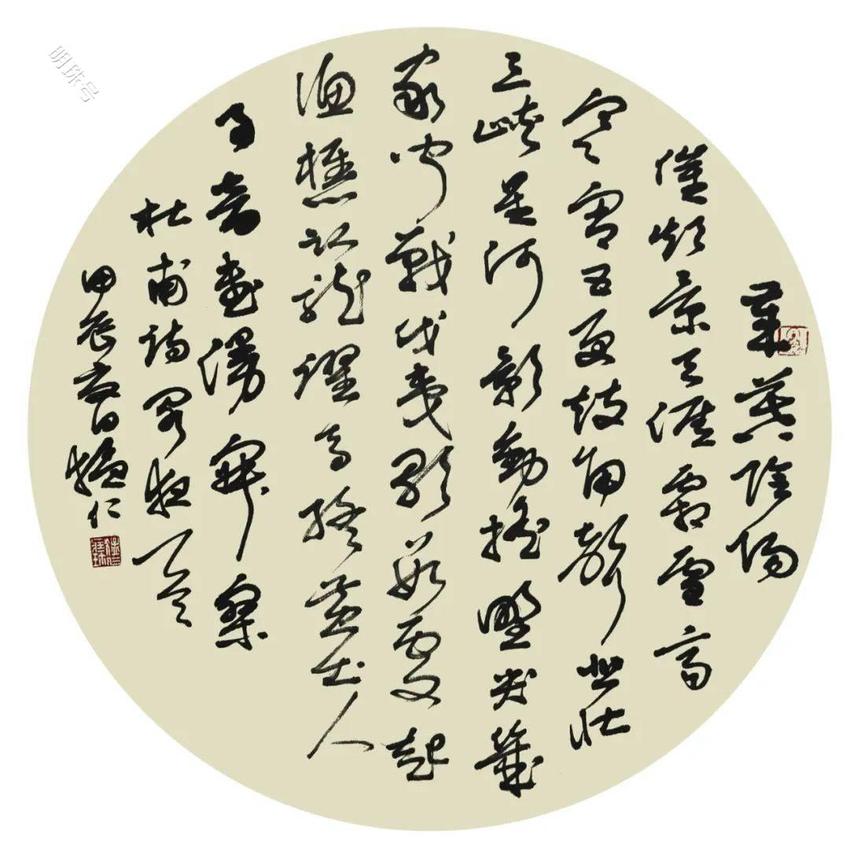 歲暮陰陽
催短景天涯霜雪霽
寒宵五更鼓角聲悲壯
三峽星河影動搖野哭幾
家聞戰伐夷歌數處起
漁樵臥龍躍馬終黃土人
事音書漫寂寥
杜甫詩閣夜一首
甲辰夏日仁
明珠号